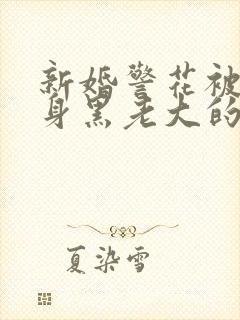 新婚警花被
身黑老大的
夏染雪